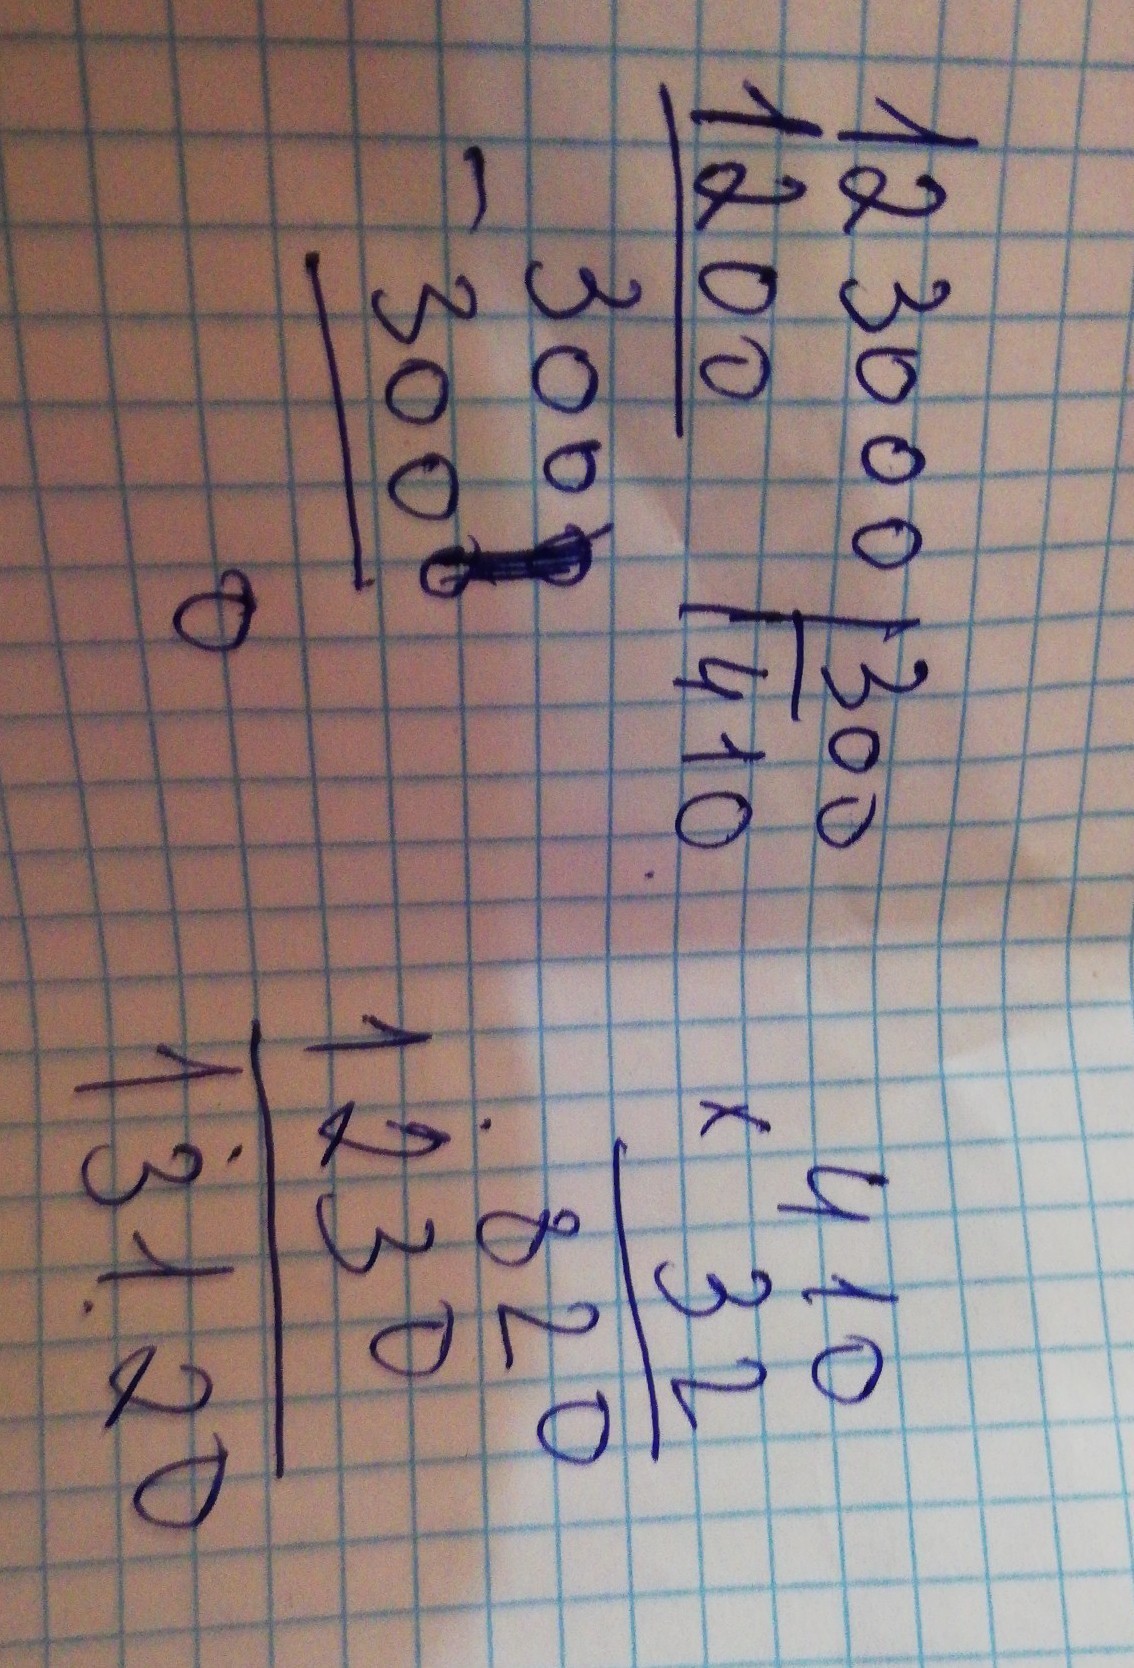 123000|300
1200 410
300
- 300
0
410
x 32
820
1230
13120